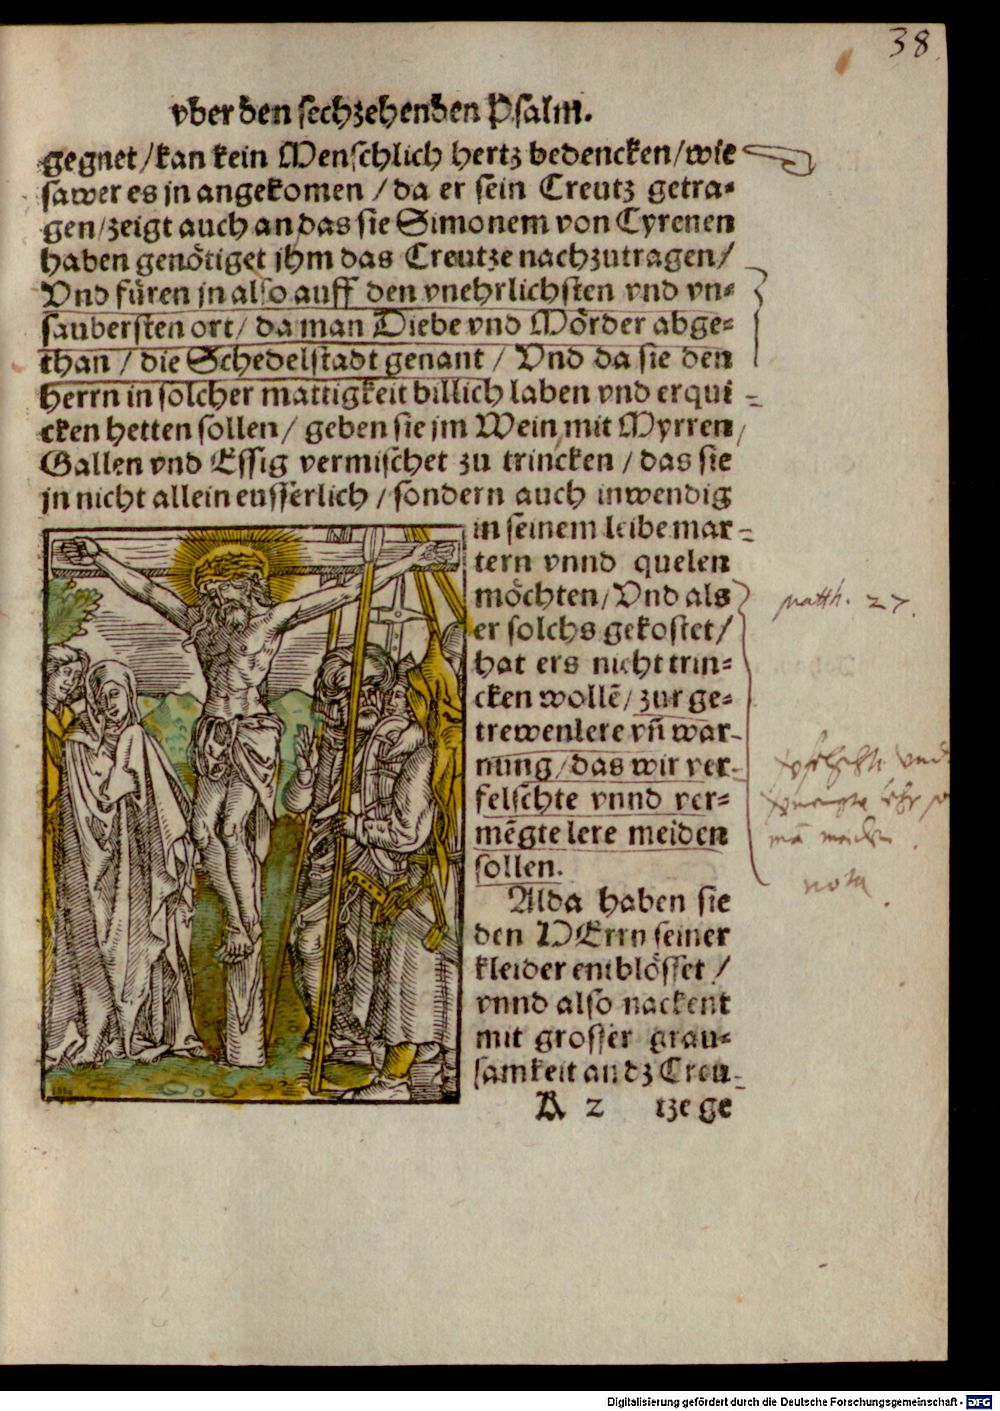 38
vber den sechzehenden Psalm.
gegnet / kan kein Menschlich hertz bedencken / wie
sawer es jn angekomen / da er sein Creutz getra-
gen / zeigt auch an das sie Simonem von Cyrenen
haben genötiget jhm das Creutze nachzutragen /
Vnd füren jn also auff den vnehrlichsten vnd vn-
saubersten ort / da man Diebe vnd Mörder abge-
than / die Schedelstadt genant / Vnd da sie den
herrn in solcher mattigkeit billich laben vnd erqui-
cken hetten sollen / geben sie jm Wein mit Myrren /
Gallen vnd Essig vermischet zu trincken / das sie
jn nicht allein eusserlich / sondern auch inwendig
in seinem leibe mar-
tern vnnd quelen
möchten / Vnd als
er solchs gekostet /
hat ers nicht trin-
cken wollẽ / zur ge-
trewen lere vñ war-
nung / das wir ver-
felschte vnnd ver-
mẽgte lere meiden
sollen.
Alda haben sie
den HErrn seiner
kleider entblösset /
vnnd also nackent
mit grosser grau-
samkeit an dz Creu-
K 2 tze ge
Matth. 27.
nota
Digitalisierung gefördert durch die Deutsche Forschungsgemeinschaft - DFG